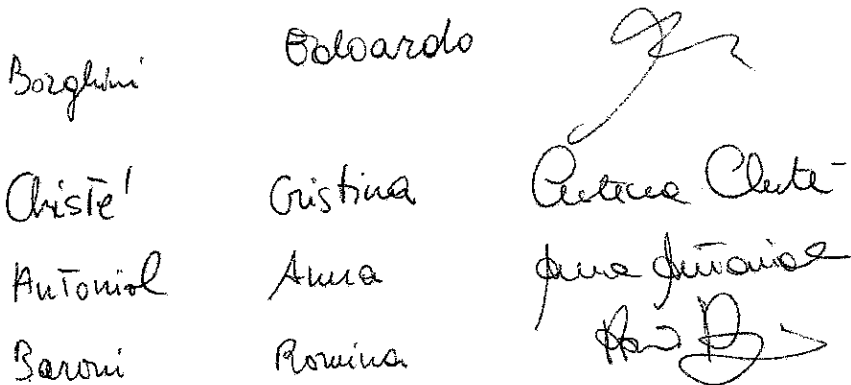 Borghini Edoardo
Christe' Cristina Cristina Christè
Antoniol Anna Anna Antoniol
Baroni Romina